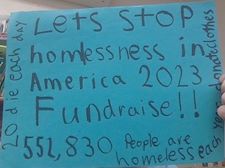 Lets stop
homlessness in
America 2023
Fundraise!!
552,830 People are
homeless each
year
donate clothes
20 die each day